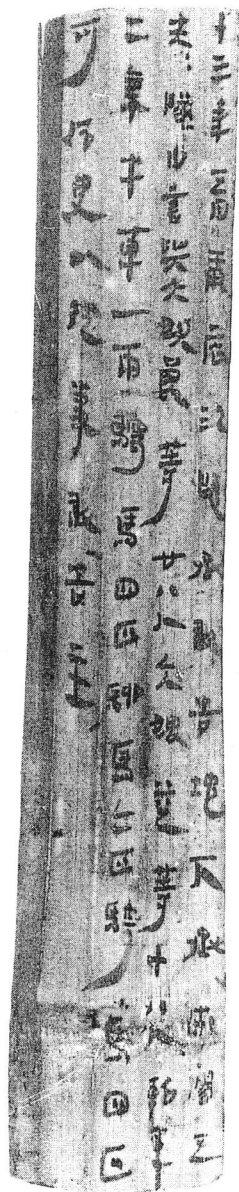 十三年五月庚辰江陵丞敢告地下丞市陽五
夫〓䢫自言與大奴良等廿八人大婢益等十八人軺車
二乘牛車一兩騶馬四匹駠馬二匹騎馬四匹
可令吏以從事敢告主